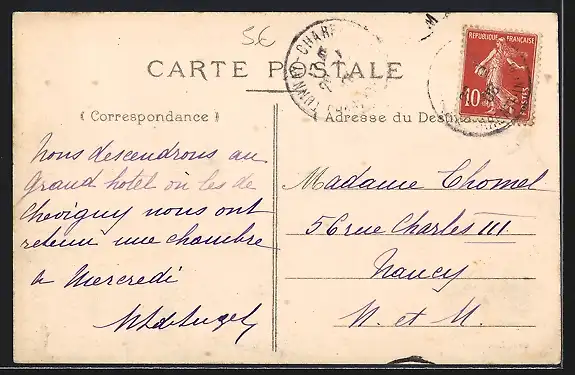 5€
CARTE POSTALE
( Correspondance )
Adresse du Destinataire
REPUBLIQUE FRANÇAISE
10 c
POSTES
TONNAY-CHARENTE
Nous descendrons au
grand hotel où les de
Chevigny nous ont
retenu une chambre
a Mercredi
Madame Chomel
56 rue Charles III
Nancy
M. et M.